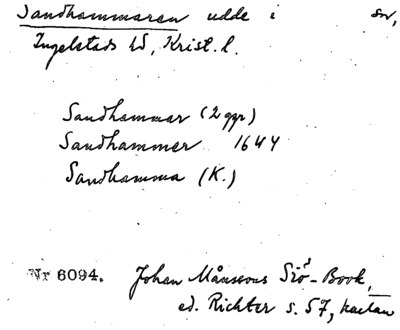 Sandhammaren udde i sn,
Ingelstads hd, Krist. l.
Sandhammar (2 ggr)
Sandhammer 1644
Sandhamma (K.)
Nr 6094. Johan Månssons Siö-Book,
ed. Richter s. 57, kartan